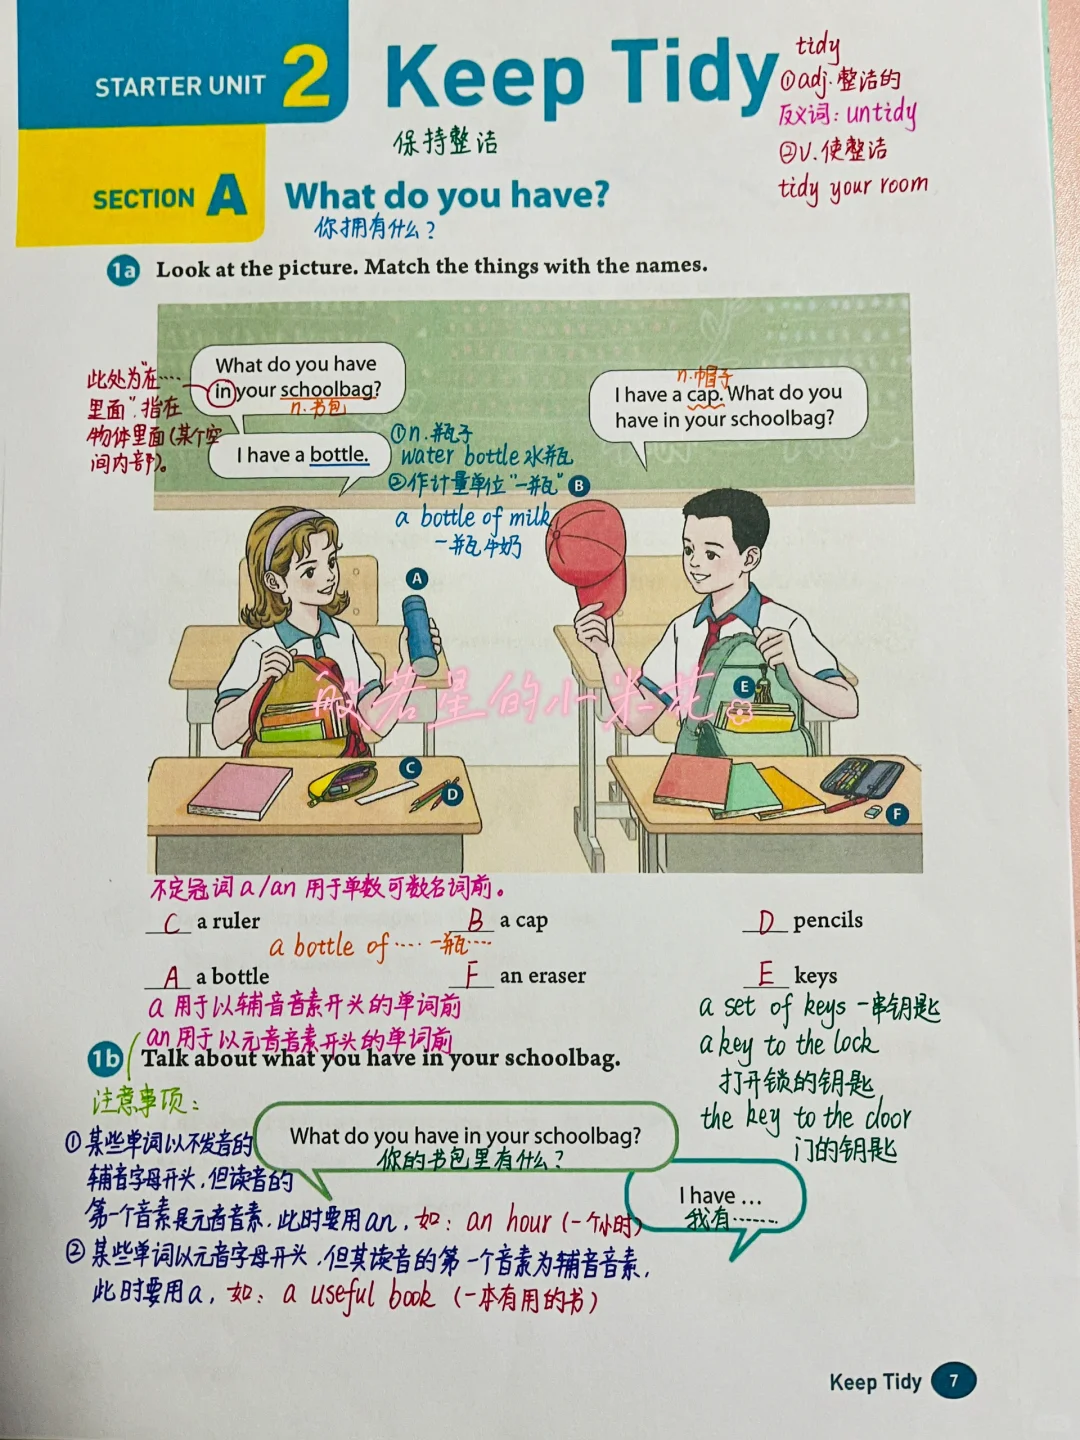 STARTER UNIT 2
Keep Tidy
保持整洁
tidy
①adj.整洁的
反义词：untidy
②v.使整洁
tidy your room
SECTION A
What do you have?
你拥有什么？
1a Look at the picture. Match the things with the names.
What do you have
in your schoolbag?
n.书包
此处为“在……
里面”,指在
物体里面(某个空
间内部)。
I have a bottle.
①n.瓶子
water bottle 水瓶
②作计量单位“一瓶”
a bottle of milk
一瓶牛奶
n.帽子
I have a cap. What do you
have in your schoolbag?
B
A
E
C
D
F
般若星的小米花
不定冠词 a/an 用于单数可数名词前。
C a ruler
B a cap
D pencils
a bottle of …… 一瓶……
A a bottle
F an eraser
E keys
a 用于以辅音音素开头的单词前
an 用于以元音音素开头的单词前
a set of keys 一串钥匙
a key to the lock
打开锁的钥匙
the key to the door
门的钥匙
1b Talk about what you have in your schoolbag.
注意事项：
What do you have in your schoolbag?
你的书包里有什么？
I have ...
我有……
①某些单词以不发音的
辅音字母开头,但读音的
第一个音素是元音音素,此时要用an,如：an hour (一个小时)
②某些单词以元音字母开头,但其读音的第一个音素为辅音音素,
此时要用a,如：a useful book (一本有用的书)
Keep Tidy 7